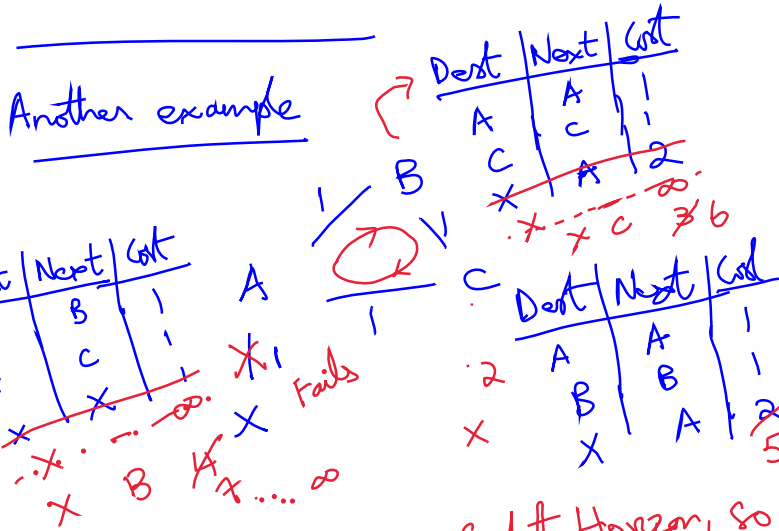 Another example
Dest Next Cost
A A 1
C C 1
X A 2
X ∞
X C 3 6
B
1 1
A C
1
Next Cost
B 1
C 1
X X 1
X ∞
X B 4
X ..... ∞
X 1
Fails
X
2
X
Dest Next Cost
A A 1
B B 1
X A 2
5
Horizon, so